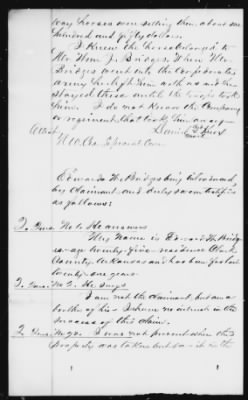 way horses were selling then about one
hundred and fifty dollars.
I knew the horse belonged to
Mr. Wm. J. Bridges. When Mr.
Bridges went into the Confederate
army he left him with us and he
stayed there until the troops took
him. I do not know the Company
or regiment that took him away
Attest
mark
Special Com
Edward H. Bridges being introduced
by Claimant and duly sworn testifies
as follows:
To Ques. No 1. He answers
My Name is Edward H. Bridges
age twenty five residence Clark
County, Arkansas and has been for last
twenty one years
To Ques. No 2. He says
I am not the claimant, but am a
brother of his I have no interest in the
success of this claim.
To Ques. I was not present when the
property was taken but saw it with